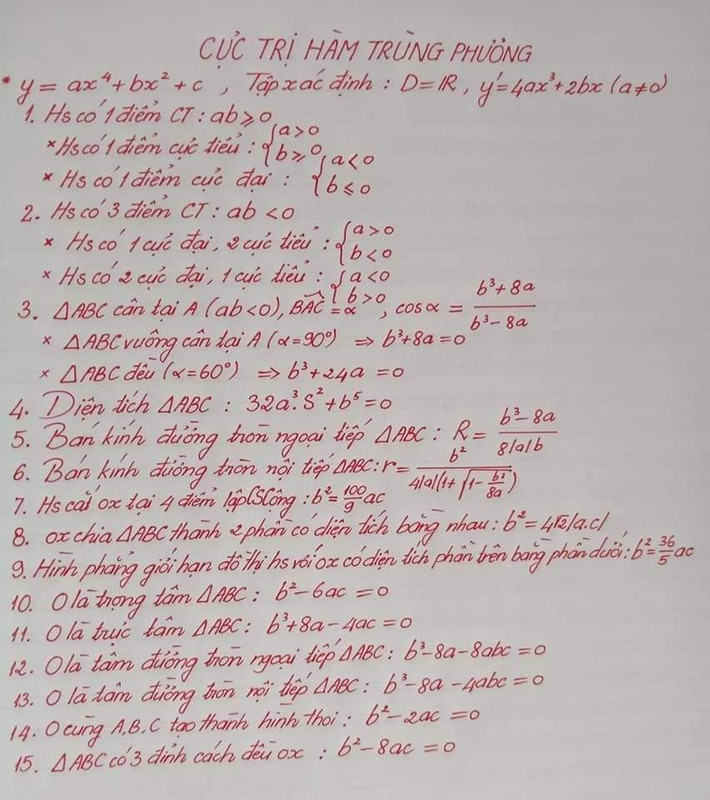 CỰC TRỊ HÀM TRÙNG PHƯƠNG
* y = ax⁴ + bx² + c , Tập xác định : D = ℝ , y' = 4ax³ + 2bx (a ≠ 0)
1. Hs có 1 điểm CT : ab ≥ 0
× Hs có 1 điểm cực tiểu : { a > 0
b ≥ 0
× Hs có 1 điểm cực đại : { a < 0
b ≤ 0
2. Hs có 3 điểm CT : ab < 0
× Hs có 1 cực đại, 2 cực tiểu : { a > 0
b < 0
× Hs có 2 cực đại, 1 cực tiểu : { a < 0
b > 0
3. ΔABC cân tại A (ab < 0), BAC = α , cosα = (b³ + 8a)/(b³ - 8a)
× ΔABC vuông cân tại A (α = 90°) ⇒ b³ + 8a = 0
× ΔABC đều (α = 60°) ⇒ b³ + 24a = 0
4. Diện tích ΔABC : 32a³.S² + b⁵ = 0
5. Bán kính đường tròn ngoại tiếp ΔABC : R = (b³ - 8a)/(8|a|b)
6. Bán kính đường tròn nội tiếp ΔABC : r = b²/(4|a|(1 + √(1 - b³/8a)))
7. Hs cắt ox tại 4 điểm lập CSCộng : b² = 100/9 ac
8. ox chia ΔABC thành 2 phần có diện tích bằng nhau : b² = 4√2|a.c|
9. Hình phẳng giới hạn đồ thị hs với ox có diện tích phần trên bằng phần dưới : b² = 36/5 ac
10. O là trọng tâm ΔABC : b² - 6ac = 0
11. O là trực tâm ΔABC : b³ + 8a - 4ac = 0
12. O là tâm đường tròn ngoại tiếp ΔABC : b³ - 8a - 8abc = 0
13. O là tâm đường tròn nội tiếp ΔABC : b³ - 8a - 4abc = 0
14. O cùng A, B, C tạo thành hình thoi : b² - 2ac = 0
15. ΔABC có 3 đỉnh cách đều ox : b² - 8ac = 0